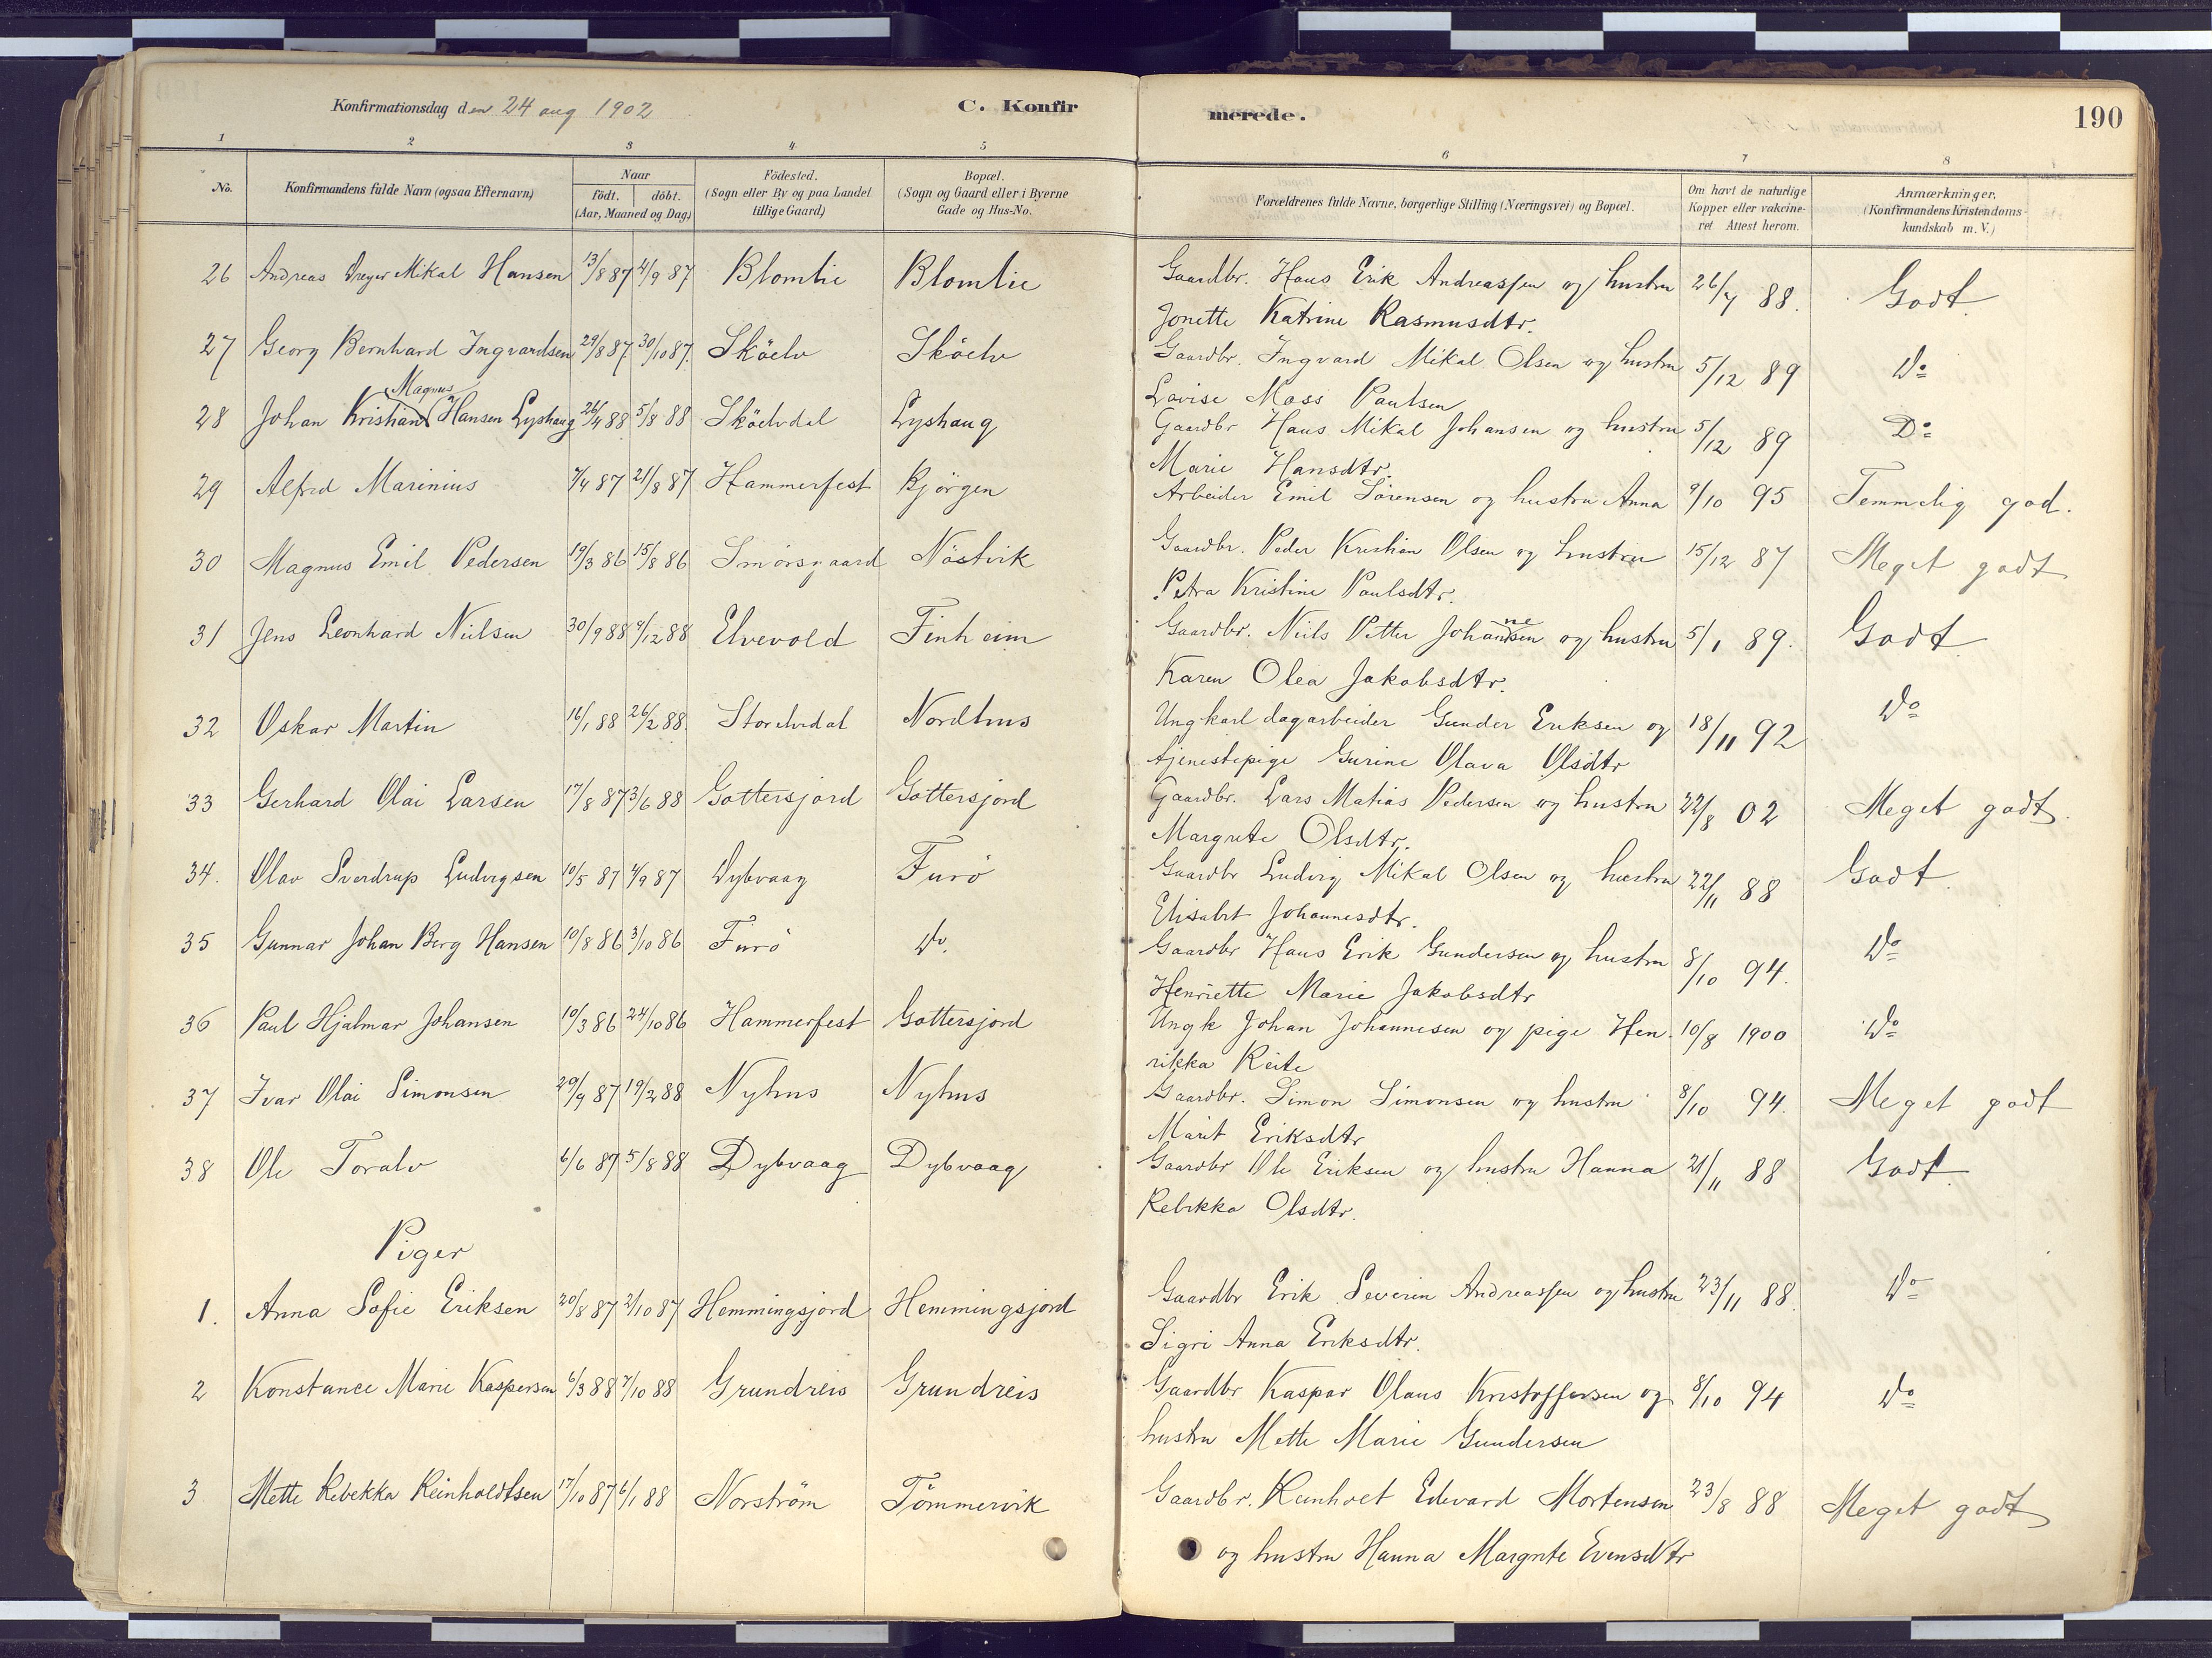 Konfirmationsdag den 24 aug 1902
C. Konfirmerede.
190
1 2 3 4 5 6 7 8
No. Konfirmandens fulde Navn (ogsaa Efternavn) Naar födt. döbt. (Aar, Maaned og Dag) Födested. (Sogn eller By og paa Landet tillige Gaard) Bopæl. (Sogn og Gaard eller i Byerne Gade og Hus-No. Forældrenes fulde Navne, borgerlige Stilling (Næringsvei) og Bopæl. Om havt de naturlige Kopper eller vakcineret Attest herom. Anmærkninger. (Konfirmandens Kristendomskundskab m. V.)
26 Andreas Dreyer Mikal Hansen 13/8 87 4/9 87 Blomlie Blomlie Gaardbr. Hans Erik Andreassen og hustru 26/7 88. Godt.
Jonette Katrine Rasmusdtr.
27 Georg Bernhard Ingvardsen 29/8 87 30/10 87. Sköelv Sköelv Gaardbr. Ingvard Mikal Olsen og hustru 5/12 89 Do
Lovise Moss Paulsen
28 Johan Kristian Magnus Hansen Lyshaug 26/4 88 5/8 88 Sköelvdal Lyshaug Gaardbr Hans Mikal Johansen og hustru 5/12 89 Do
Marie Hansdtr.
29 Alfred Marinius 7/4 87 21/8 87 Hammerfest Bjorgen Arbeider Emil Sörensen og hustru Anna 9/10 95 Temmelig god.
30 Magnus Emil Pedersen 19/3 86 15/8 86 Smörsgaard Nöstvik Gaardbr. Peder Kristian Olsen og hustru 15/12 87 Meget godt
Petra Kristine Paulsdtr.
31 Jens Leonhard Nilsen 30/9 88 9/12 88 Elvevold Finheim Gaardbr. Nils Petter Johannesen og hustru 5/1 89. Godt
Karen Olea Jakobsdtr.
32 Oskar Martin 16/1 88 26/2 88. Storelvdal Nordhus Ungkarl dagarbeider Gunder Eriksen og 18/11 92 Do
tjenestepige Gurine Olava Olsdtr
33 Gerhard Olai Larsen 17/8 87 3/6 88 Gottersjord Gottersjord Gaardbr. Lars Matias Pedersen og hustru 22/8 02 Meget godt.
Margrete Olsdtr.
34. Olav Sverdrup Ludvigsen 10/5 87 4/9 87 Dybvaag Furö Gaardbr Ludvig Mikal Olsen og hustru 22/11 88 Godt.
Elisabet Johannesdtr.
35 Gunnar Johan Berg Hansen 10/8 86 3/10 86 Furö Do. Gaardbr Hans Erik Gundersen og hustru 8/10 94. Do
Henriette Marie Jakobsdtr
36 Paul Hjalmar Johansen 10/3 86 24/10 86 Hammerfest Gottersjord Ungk Johan Johannesen og pige Hen- 10/8 1900 Do
rikka Reite
37 Ivar Olai Simonsen 29/9 87 19/2 88 Nyhus Nyhus Gaardbr. Simon Simonsen og hustru 8/10 94. Meget godt
Marit Eriksdtr
38 Ole Toralv 6/6 87 5/8 88 Dybvaag Dybvaag Gaardbr Ole Eriksen og hustru Hanna 21/11 88 Godt.
Rebekka Olsdtr.
Piger
1. Anna Sofie Eriksen 20/8 87 2/10 87 Hemmingsjord Hemmingsjord Gaardbr Erik Severin Andreassen og hustru 23/11 88. Do
Sigri Anna Eriksdtr.
2 Konstance Marie Kaspersen 6/3 88 7/10 88 Grundreis Grundreis Gaardbr Kaspar Olaus Kristoffersen og 8/10 94 Do
hustru Mette Marie Gundersen
3 Mette Rebekka Reinholdtsen 17/10 87 6/1 88 Norström Tömmervik Gaardbr. Reinholt Edevard Mortensen 23/8 88 Meget godt
og hustru Hanna Margrete Evensdtr